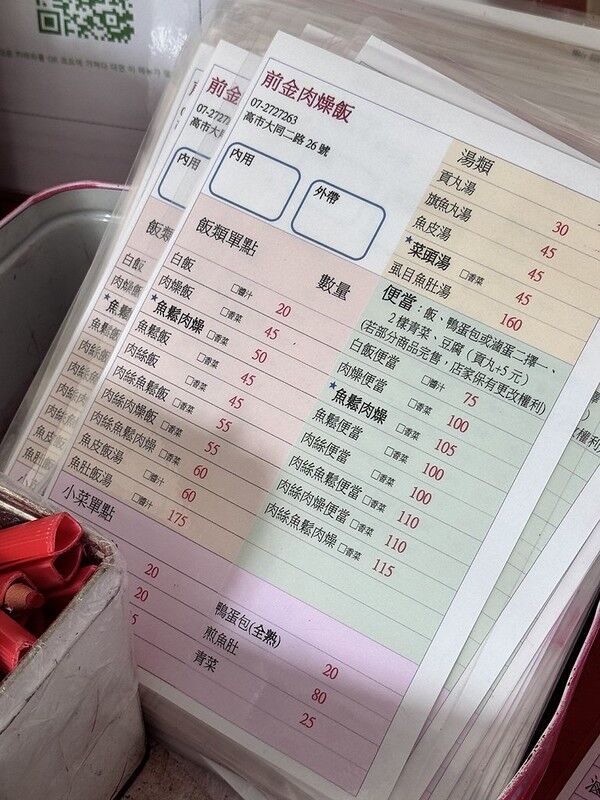 前金肉燥飯
07-2727263
高市大同二路 26 號
內用
外帶
飯類單點
數量
白飯 □醬汁 20
肉燥飯 □香菜 45
★魚鬆肉燥 □香菜 50
魚鬆飯 □香菜 45
肉絲飯 □香菜 45
肉絲魚鬆飯 □香菜 55
肉絲肉燥飯 □香菜 55
肉絲魚鬆肉燥 □香菜 60
魚皮飯湯 □醬汁 60
魚肚飯湯 □醬汁 175
小菜單點
20
20
鴨蛋包(全熟) 20
煎魚肚 80
青菜 25
湯類
貢丸湯 30
旗魚丸湯 45
魚皮湯 45
★菜頭湯 □香菜 45
虱目魚肚湯 160
便當：飯、鴨蛋包或滷蛋二擇一、
2 樣青菜、豆腐（貢丸+5 元）
(若部分商品完售，店家保有更改權利)
白飯便當 □醬汁 75
肉燥便當 □香菜 100
★魚鬆肉燥 □香菜 105
魚鬆便當 □香菜 100
肉絲便當 □香菜 100
肉絲魚鬆便當 □香菜 110
肉絲肉燥便當 □香菜 110
肉絲魚鬆肉燥 □香菜 115